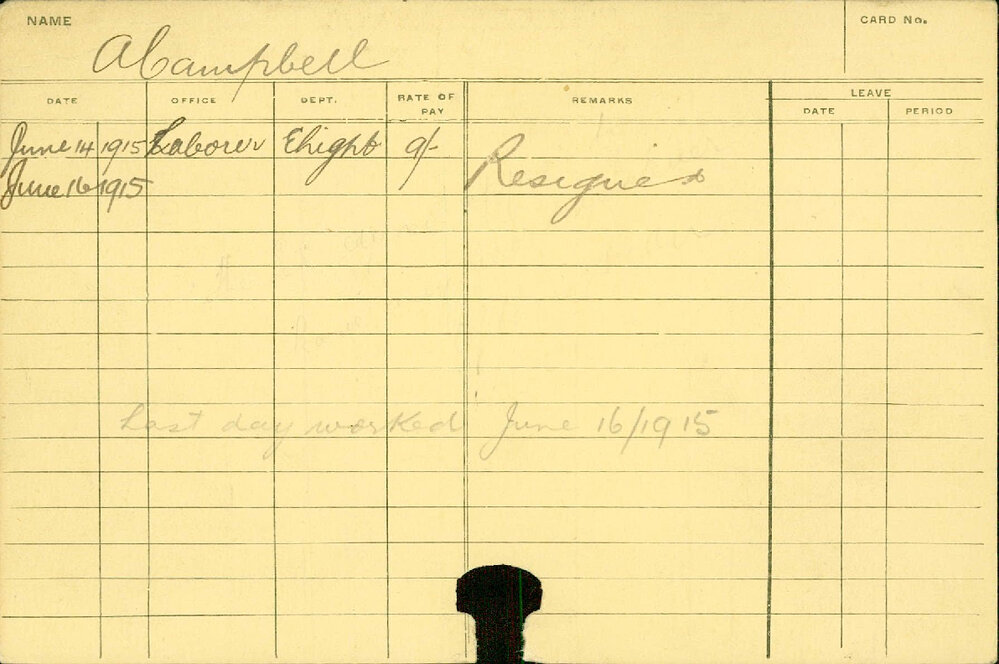 NAME
CARD No.
A Campbell
DATE OFFICE DEPT. RATE OF PAY REMARKS LEAVE
DATE PERIOD
June 14 1915 Laborer Ehight 9/-
June 16 1915 Resigned
Last day worked June 16/1915